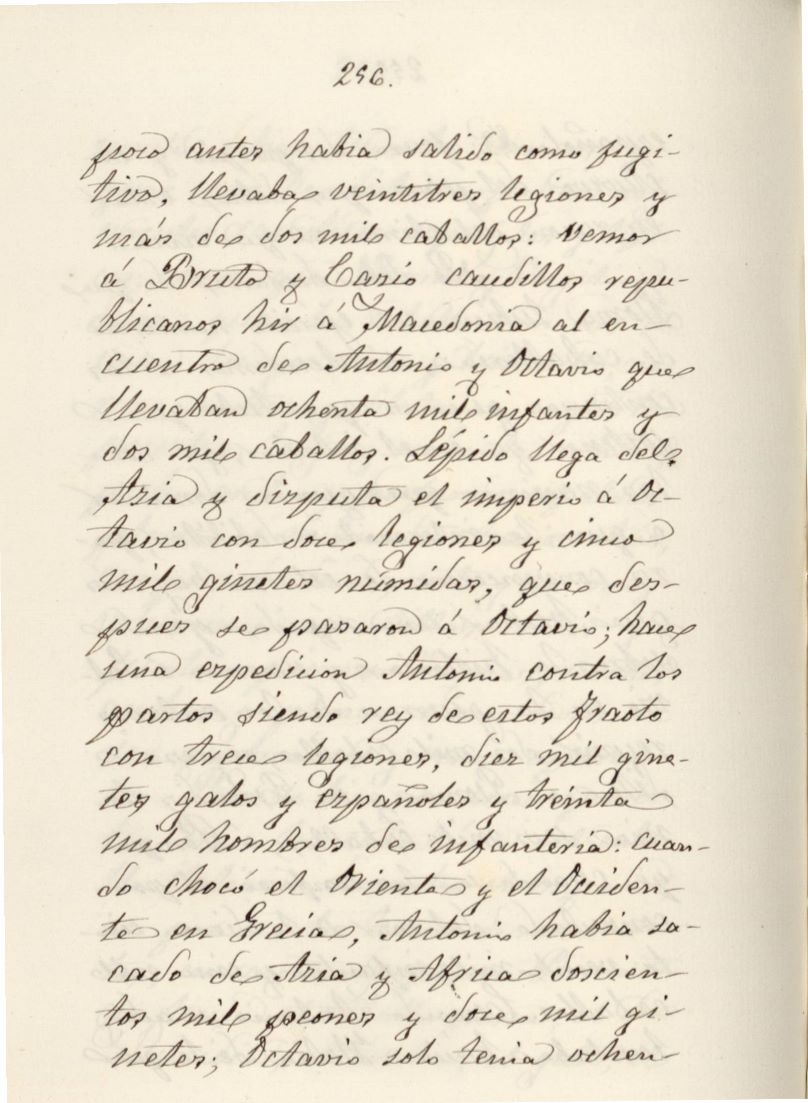 256.
poco antes habia salido como fugi-
tivo, llevaba veintitres legiones y
más de dos mil caballos: vemos
á Bruto y Casio caudillos repu-
blicanos hir á Macedonia al en-
cuentro de Antonio y Octavio que
llevaban ochenta mil infantes y
dos mil caballos. Lépido llega del
Asia y disputa el imperio á Oc-
tavio con doce legiones y cinco
mil ginetes númidas, que des-
pues se pasaron á Octavio; hace
una espedicion Antonio contra los
partos siendo rey de estos Fraoto
con trece legiones, diez mil gine-
tes galos y españoles y treinta
mil hombres de infantería: cuan-
do chocó el Oriente y el Occiden-
te en Grecia, Antonio habia sa-
cado de Asia y Africa doscien-
tos mil peones y doce mil gi-
netes; Octavio solo tenia ochen-